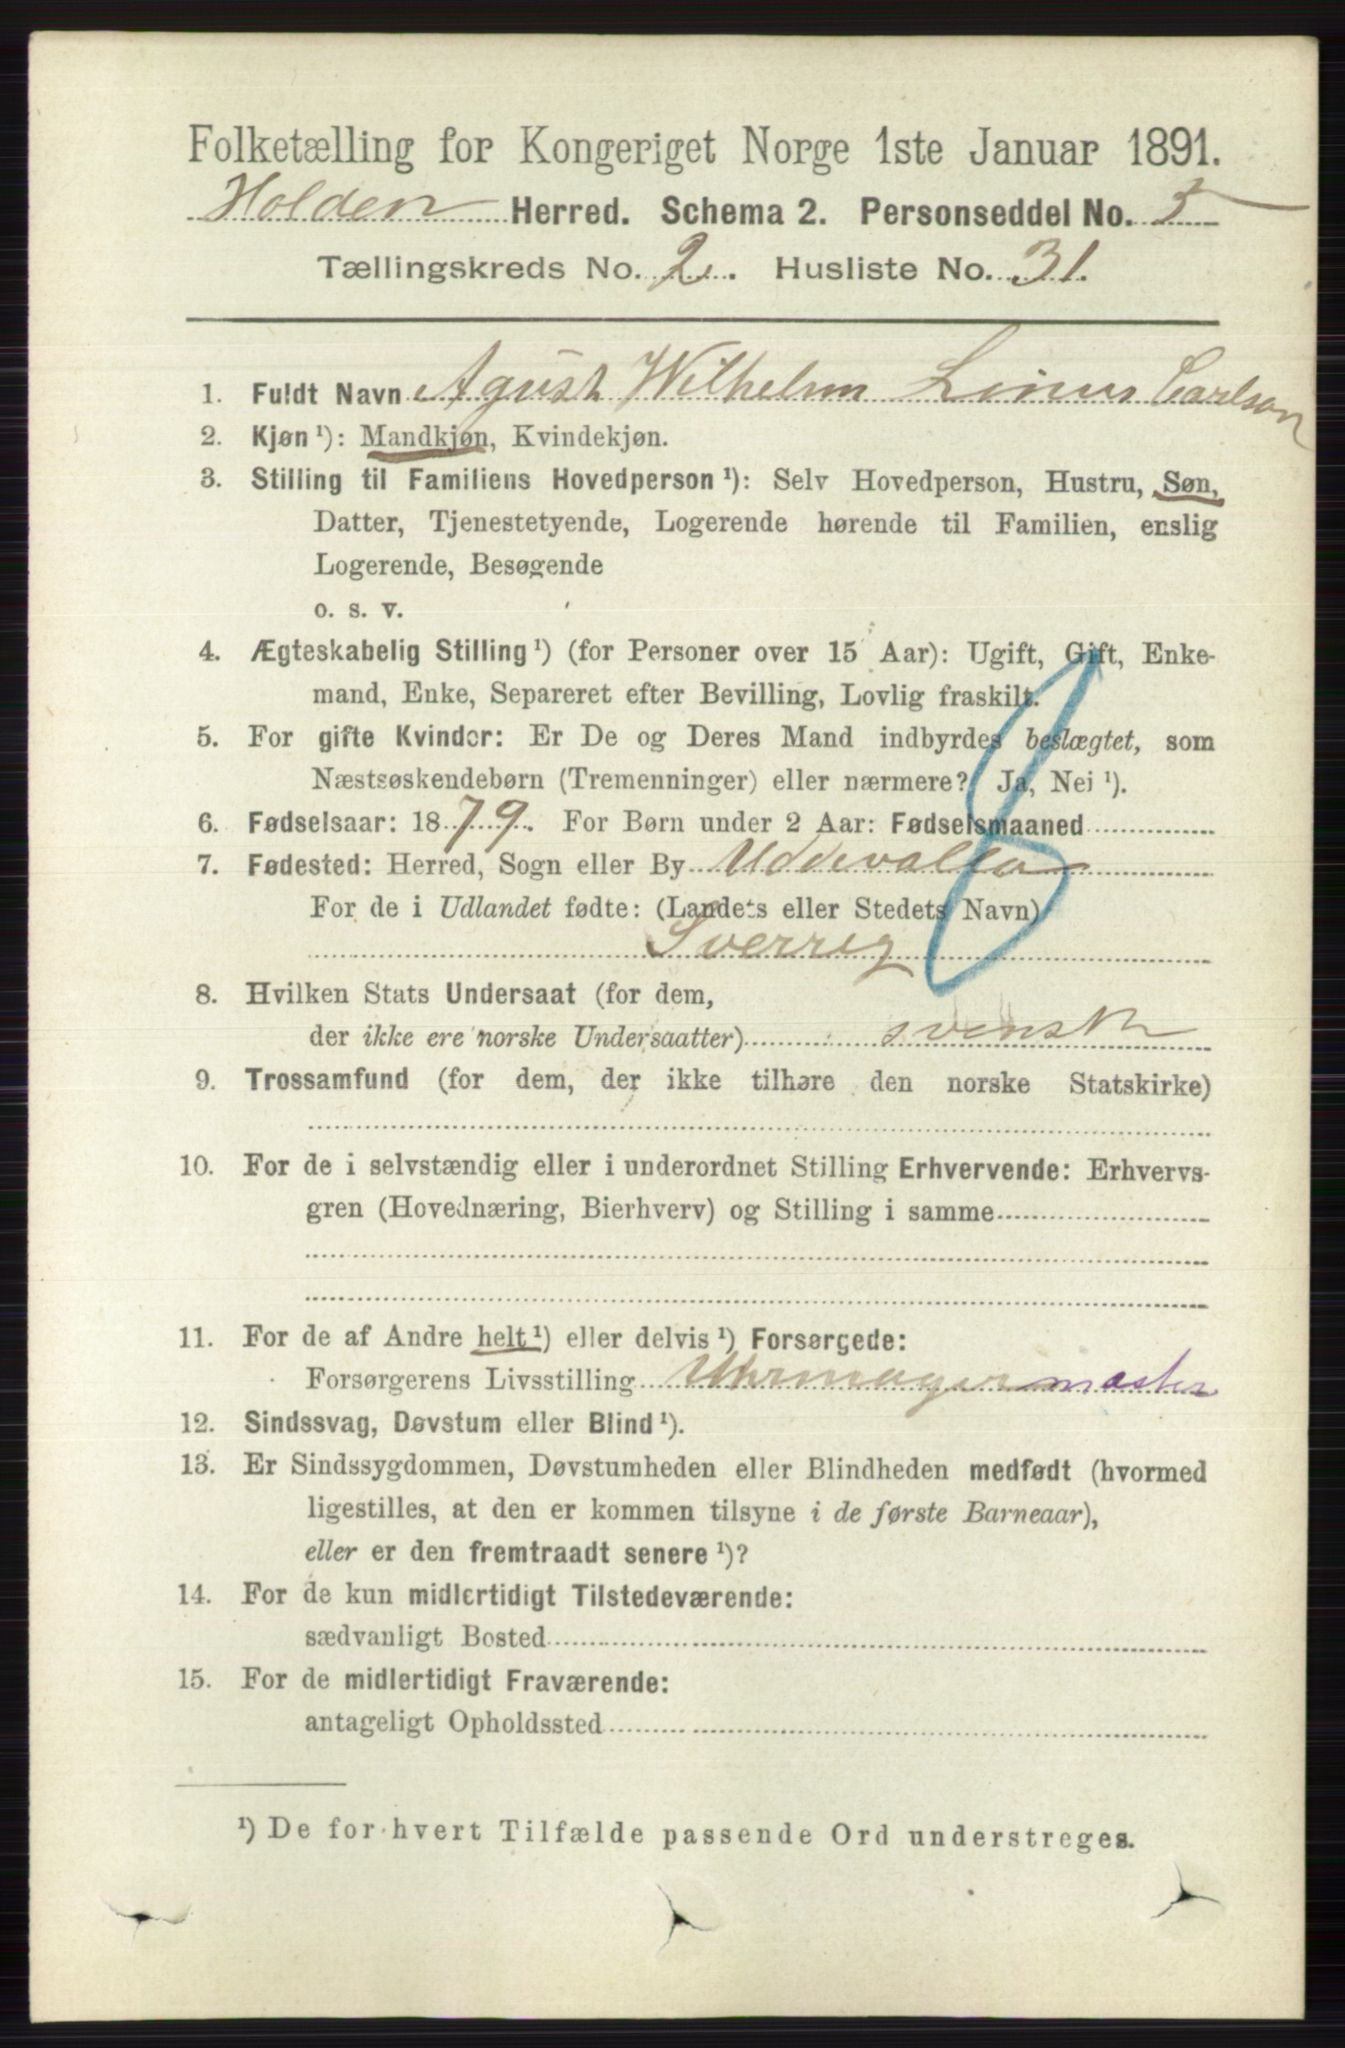 Folketælling for Kongeriget Norge 1ste Januar 1891.
Holden Herred. Schema 2. Personseddel No. 5
Tællingskreds No. 2. Husliste No. 31.
1. Fuldt Navn Agust Wilhelm Linus Carlson
2. Kjøn ¹): Mandkjøn, Kvindekjøn.
3. Stilling til Familiens Hovedperson ¹): Selv Hovedperson, Hustru, Søn,
Datter, Tjenestetyende, Logerende hørende til Familien, enslig
Logerende, Besøgende
o. s. v.
4. Ægteskabelig Stilling ¹) (for Personer over 15 Aar): Ugift, Gift, Enke-
mand, Enke, Separeret efter Bevilling, Lovlig fraskilt.
5. For gifte Kvinder: Er De og Deres Mand indbyrdes beslægtet, som
Næstsøskendebørn (Tremenninger) eller nærmere? Ja, Nei ¹).
6. Fødselsaar: 1879. For Børn under 2 Aar: Fødselsmaaned
7. Fødested: Herred, Sogn eller By Uddevalla
For de i Udlandet fødte: (Landets eller Stedets Navn)
Sverrig
8. Hvilken Stats Undersaat (for dem,
der ikke ere norske Undersaatter) svensk
9. Trossamfund (for dem, der ikke tilhøre den norske Statskirke)
10. For de i selvstændig eller i underordnet Stilling Erhvervende: Erhvervs-
gren (Hovednæring, Bierhverv) og Stilling i samme
11. For de af Andre helt ¹) eller delvis ¹) Forsørgede:
Forsørgerens Livsstilling Uhrmagermæster
12. Sindssvag, Døvstum eller Blind ¹).
13. Er Sindssygdommen, Døvstumheden eller Blindheden medfødt (hvormed
ligestilles, at den er kommen tilsyne i de første Barneaar),
eller er den fremtraadt senere ¹)?
14. For de kun midlertidigt Tilstedeværende:
sædvanligt Bosted
15. For de midlertidigt Fraværende:
antageligt Opholdssted
¹) De for hvert Tilfælde passende Ord understreges.